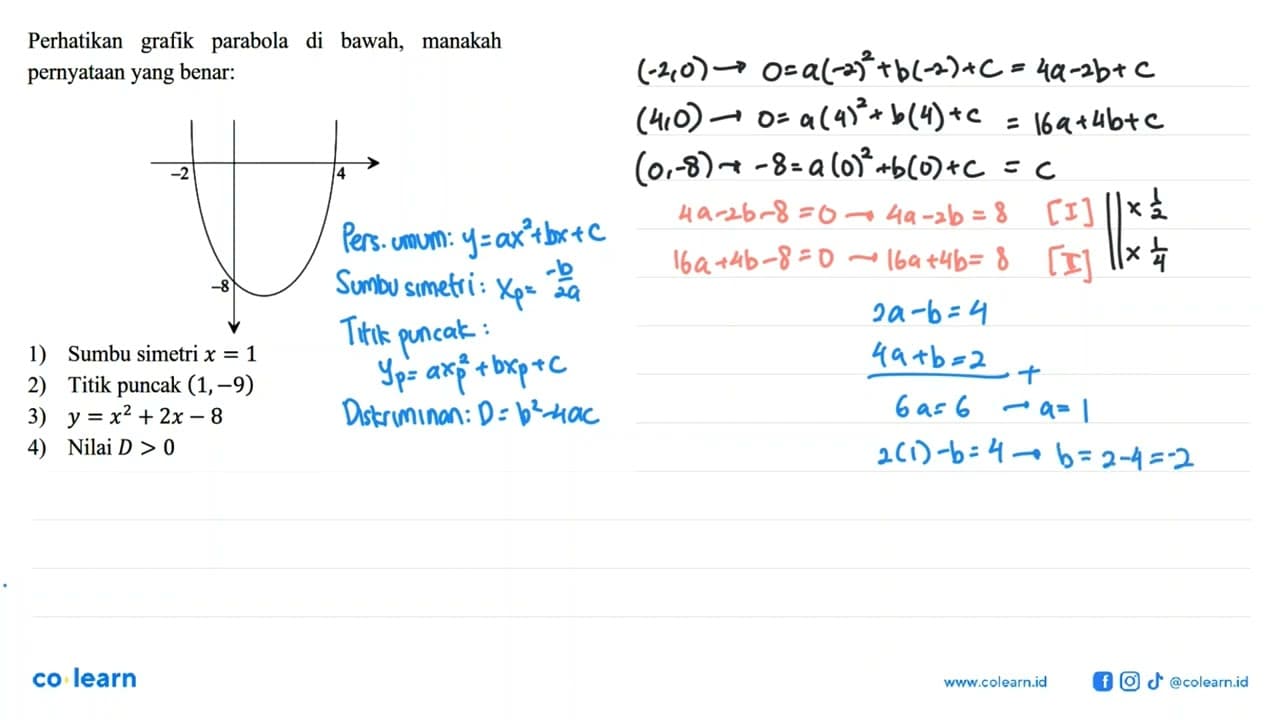 Perhatikan grafik parabola di bawah, manakah
pernyataan yang benar:
-2
4
-8
1) Sumbu simetri x = 1
2) Titik puncak (1, -9)
3) y = x² + 2x - 8
4) Nilai D > 0
Pers. umum: y = ax² + bx + c
Sumbu simetri: xp = -b/2a
Titik puncak:
yp = axp² + bxp + c
Diskriminan: D = b² - 4ac
(-2,0) → 0 = a(-2)² + b(-2) + c = 4a - 2b + c
(4,0) → 0 = a(4)² + b(4) + c = 16a + 4b + c
(0,-8) → -8 = a(0)² + b(0) + c = c
4a - 2b - 8 = 0 → 4a - 2b = 8 [I] || x 1/2
16a + 4b - 8 = 0 → 16a + 4b = 8 [II] || x 1/4
2a - b = 4
4a + b = 2 +
6a = 6 → a = 1
2(1) - b = 4 → b = 2 - 4 = -2
co·learn
www.colearn.id
@colearn.id